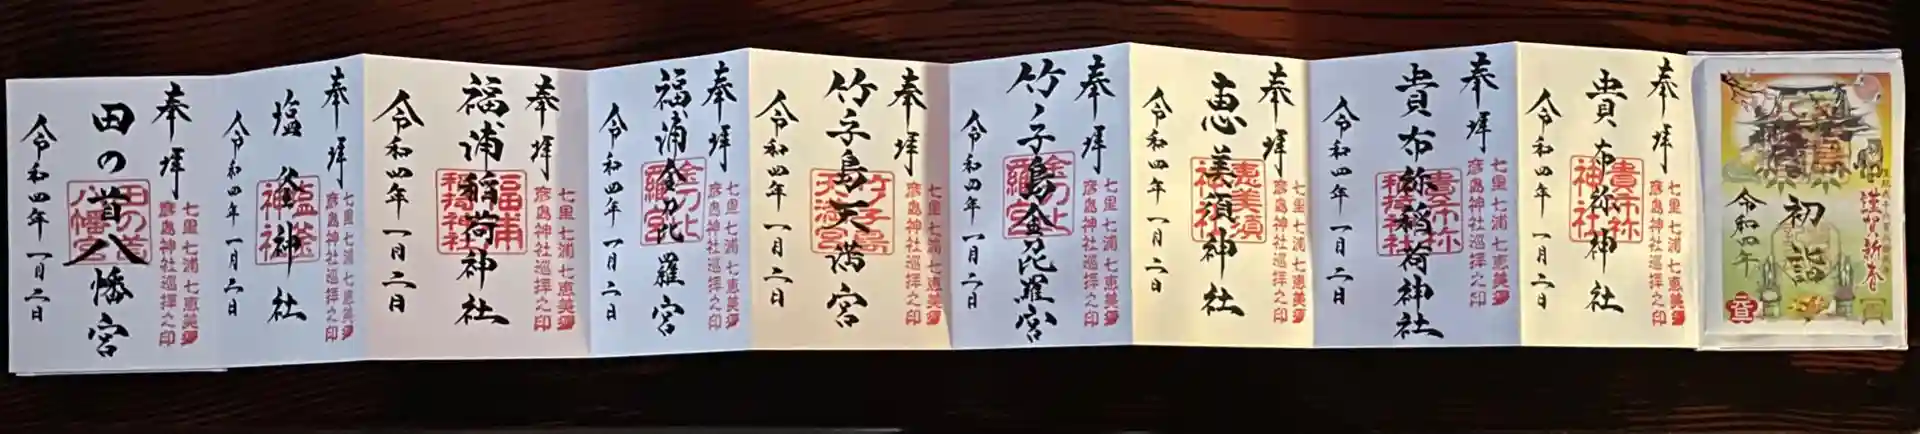 謹賀新春
初詣
令和四年
奉拝
七里七浦七恵美須
彦島神社巡拝之印
貴布祢神社
貴布祢神社
令和四年一月二日
奉拝
七里七浦七恵美須
彦島神社巡拝之印
貴布祢稲荷神社
貴布祢
稲荷神社
令和四年一月二日
奉拝
七里七浦七恵美須
彦島神社巡拝之印
恵美須神社
恵美須
神社
令和四年一月二日
奉拝
七里七浦七恵美須
彦島神社巡拝之印
竹ノ子島金刀比羅宮
金刀比
羅宮
令和四年一月二日
奉拝
七里七浦七恵美須
彦島神社巡拝之印
竹ノ子島天満宮
竹ノ子島
天満宮
令和四年一月二日
奉拝
七里七浦七恵美須
彦島神社巡拝之印
福浦金刀比羅宮
金刀比
羅宮
令和四年一月二日
奉拝
七里七浦七恵美須
彦島神社巡拝之印
福浦稲荷神社
福浦
稲荷神社
令和四年一月二日
奉拝
七里七浦七恵美須
彦島神社巡拝之印
塩釜神社
塩釜
神社
令和四年一月二日
奉拝
七里七浦七恵美須
彦島神社巡拝之印
田の首八幡宮
田の首
八幡宮
令和四年一月二日